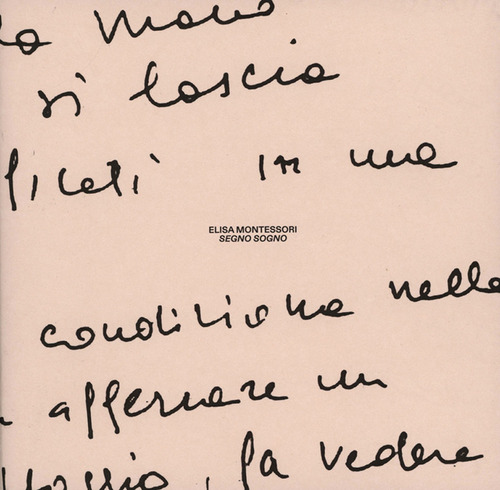 la mano
si lascia
in una
ELISA MONTESSORI
SEGNO SOGNO
condiziona nella
affermare un
, fa vedere